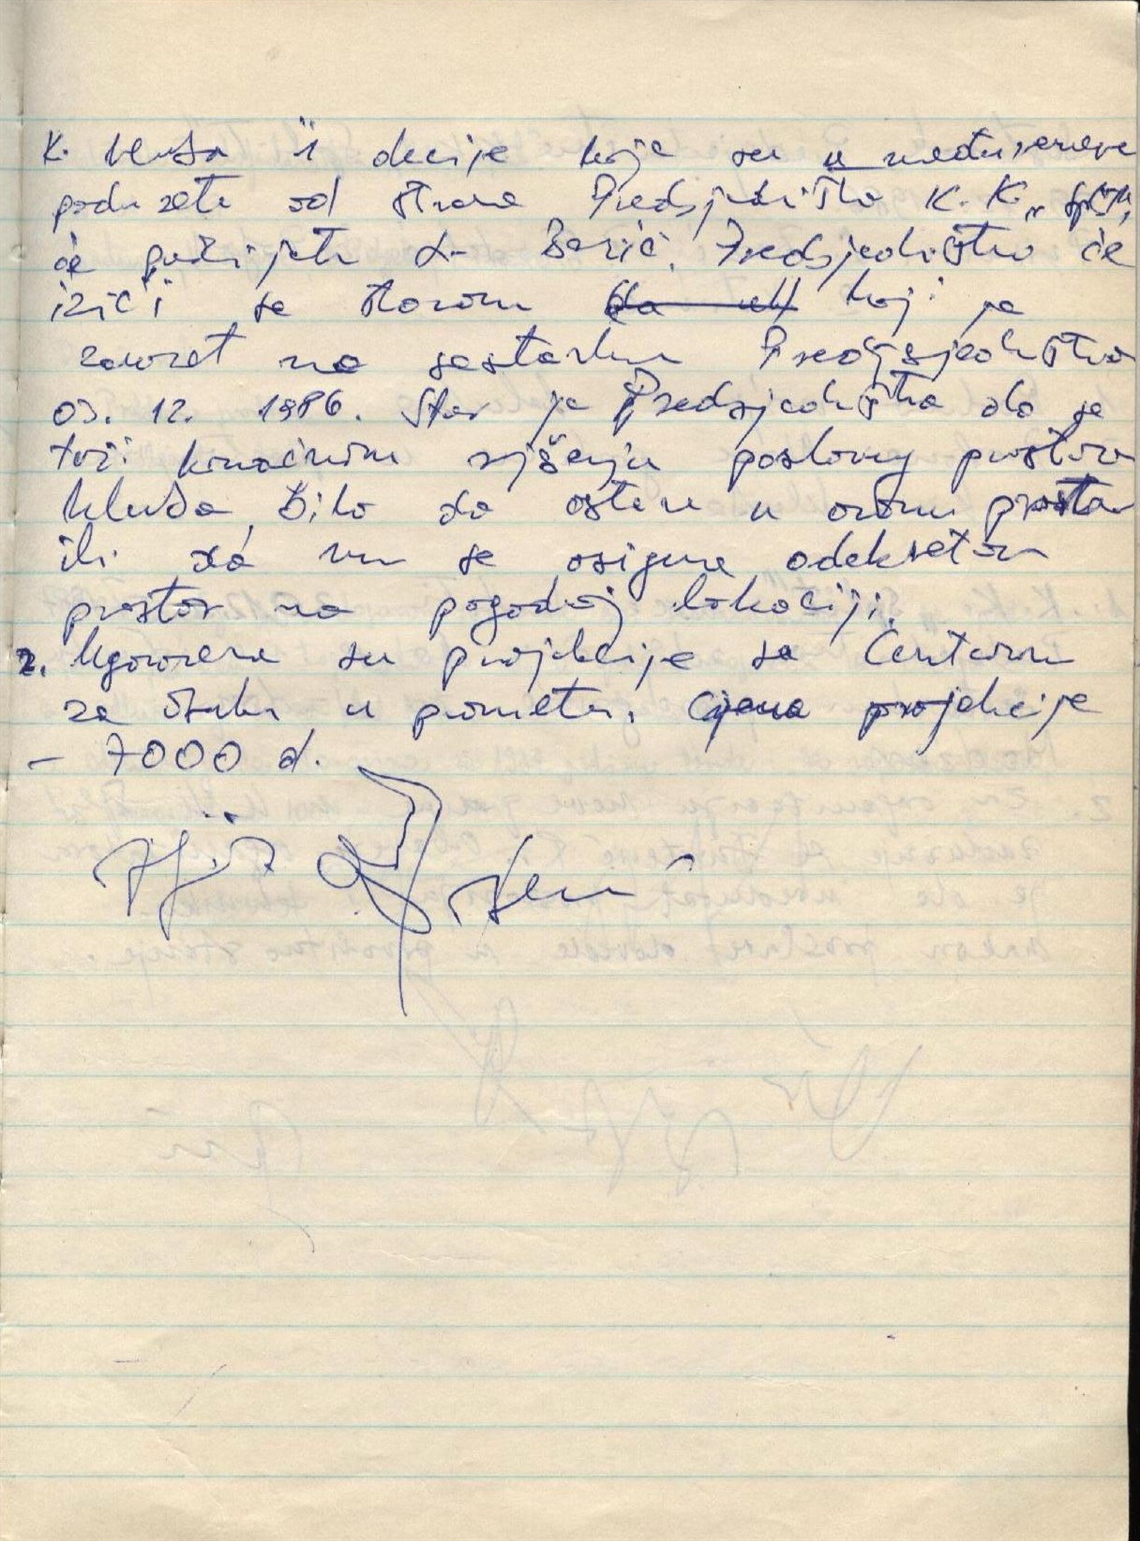 K. kluba i akcije koje su u međuvremenu
poduzete od strane Predsjedništva K. K. „Split"
će podnijeti L. Berić. Predsjedništvo će
izići sa stavom koji je
zauzet na sastanku Predsjedništva
03. 12. 1986. Stav je Predsjedništva da se
traži konačnim rješenju poslovnog prostora
kluba, bilo da ostane u ovom prostoru
ili da mu se osigura adekvatan
prostor na pogodnoj lokaciji.
2. Ugovorene su projekcije sa Centrom
za obuku u prometu. Cijena projekcije
– 7000 d.